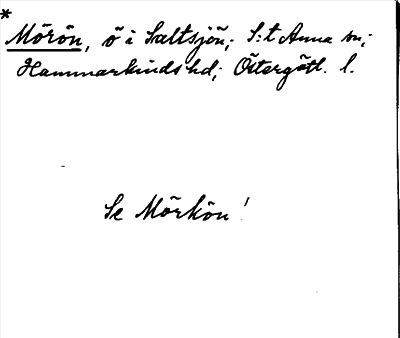 *
Mörön, ö i Saltsjön; S:t Anna sn;
Hammarkinds hd; Östergötl. l.
Se Mörkön!